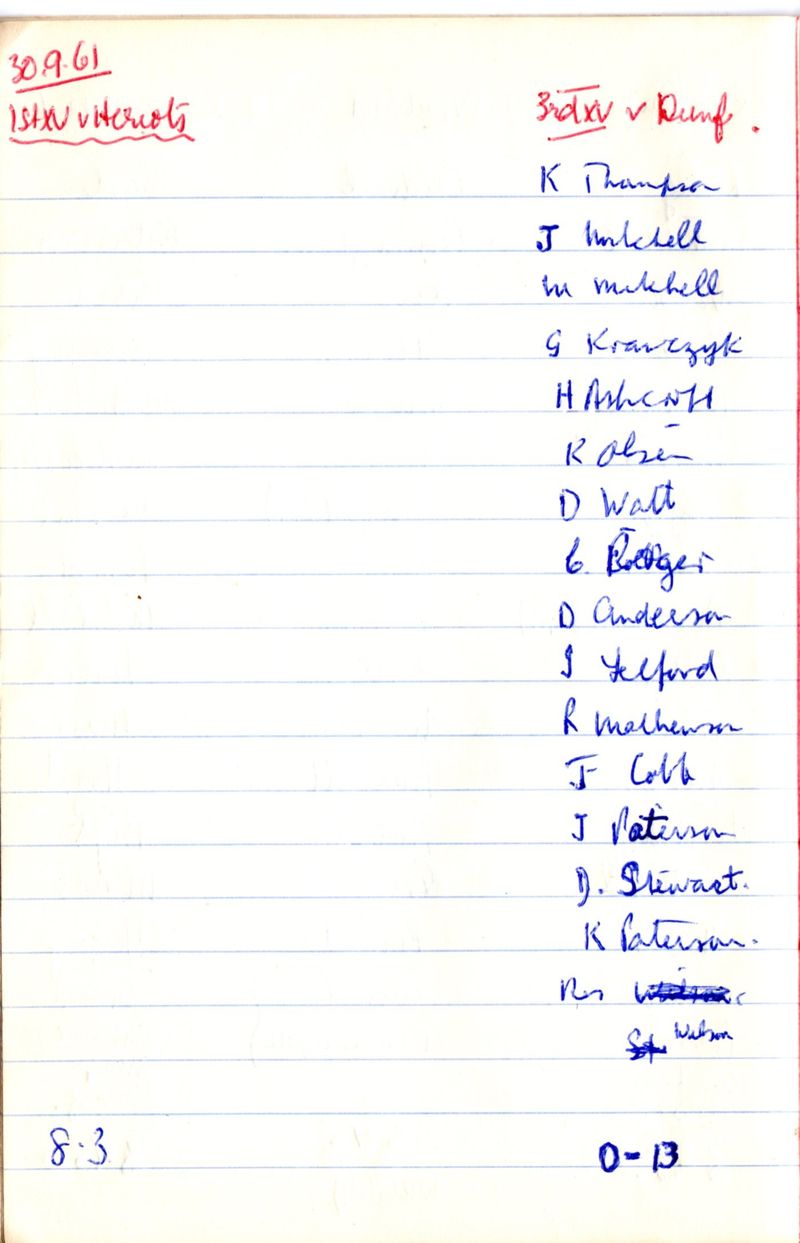 30.9.61
1st XV v Heriots
3rd XV v Dunf.
K Thompson
J Mitchell
M Mitchell
G Krawczyk
H Ashcroft
R Olsen
D Watt
D Anderson
J Telford
R Mathewson
J Cobb
J Paterson
D. Stewart.
K Paterson.
Res
Wilson
8-3
0-13